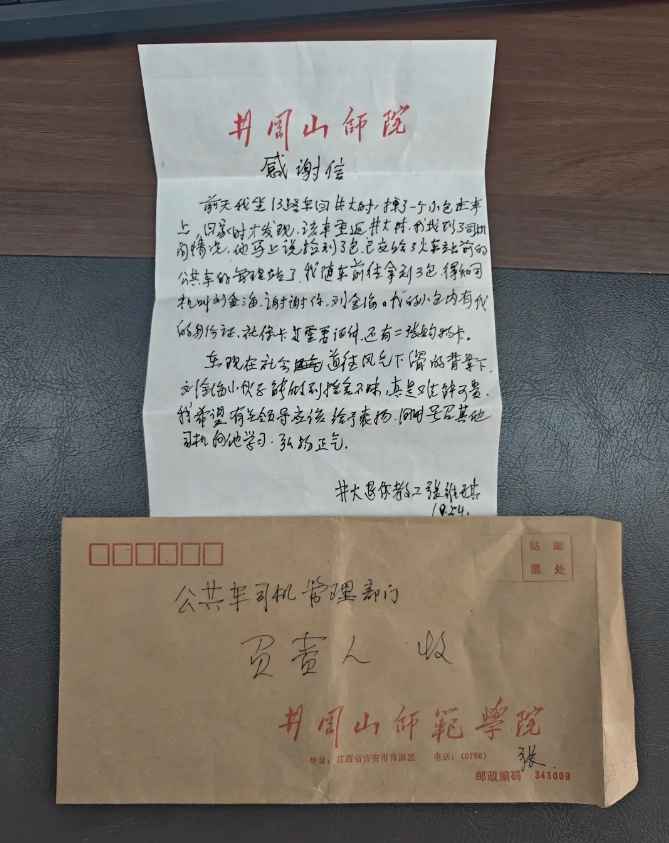 井冈山师院
感谢信
前天我坐13路车回井大时,掉了一个小包在车
上,回家时才发现。该车重返井大时,我找到了司机
问情况,他马上说捡到了包,已交给了火车站前的
公共车的管理站了,我随车前往拿到了包,得知司
机叫刘金海,谢谢你,刘金海。我的小包内有我
的身份证,社保卡等重要证件,还有二张购物卡。
在现在社会道德风气下滑的背景下,
刘金海小伙子能做到拾金不昧,真是难能可贵,
我希望有关领导应该给予表扬,同时号召其他
司机向他学习,弘扬正气。
井大退休教工 张维
10.24.
贴 邮
票 处
公共车司机管理部门
负责人 收
井冈山師範學院
地址:江西省吉安市青原区 电话:(0796)
张
邮政编码 343009